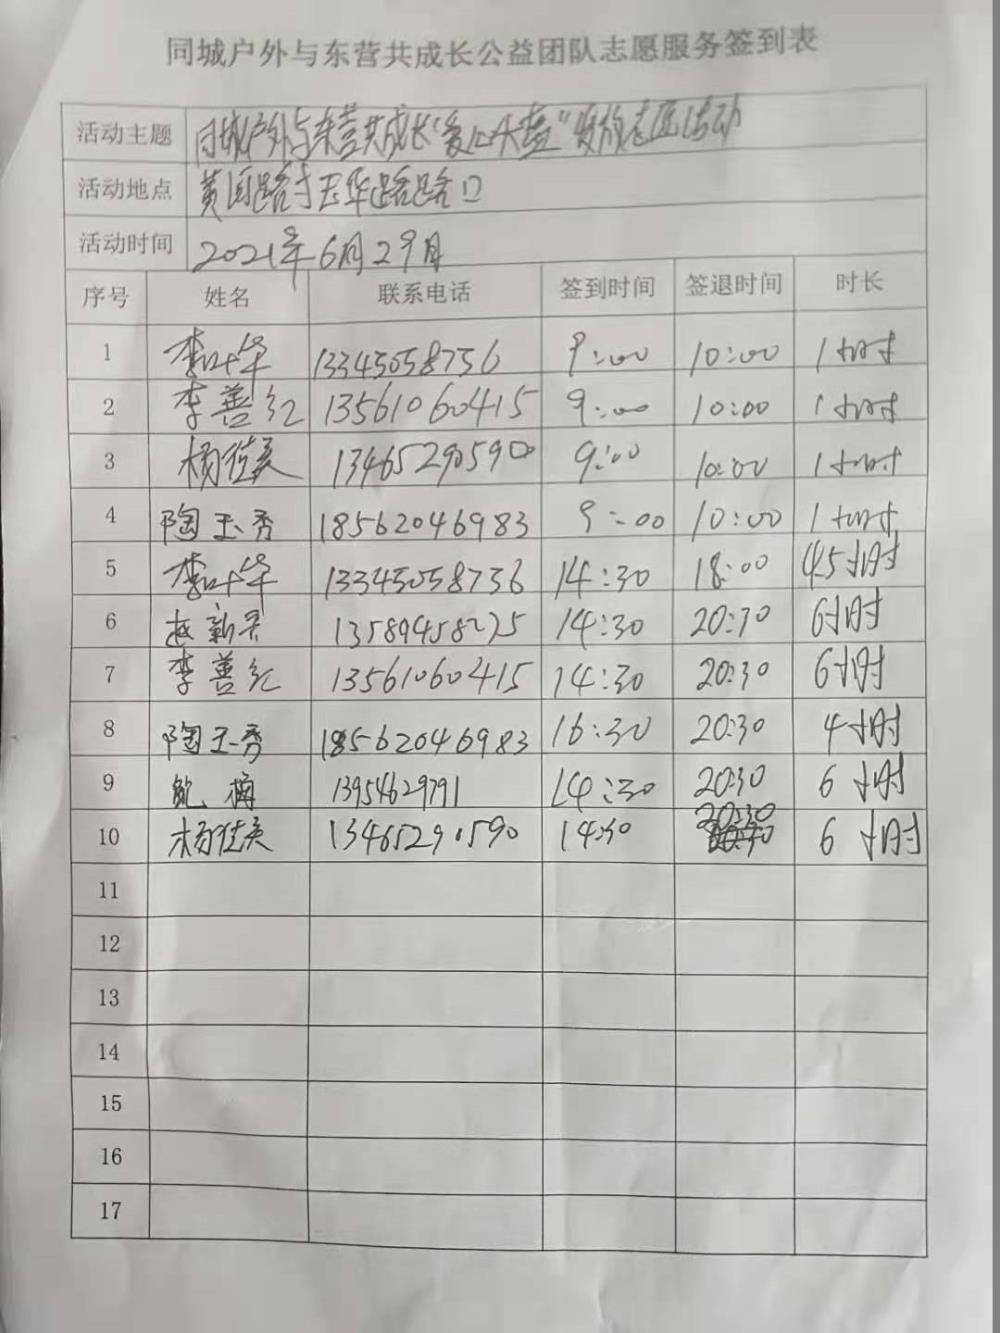 同城户外与东营共成长公益团队志愿服务签到表
活动主题 同城户外与东营共成长"爱心大蓬"发放志愿活动
活动地点 黄河路与玉华路路口
活动时间 2021年6月29日
序号 姓名 联系电话 签到时间 签退时间 时长
1 李叶华 13345058756 9:00 10:00 1小时
2 李善红 13561060415 9:00 10:00 1小时
3 杨佳英 13465290590 9:00 10:00 1小时
4 陶玉秀 18562046983 9:00 10:00 1小时
5 李叶华 13345058756 14:30 18:00 4.5小时
6 赵新 13589458275 14:30 20:30 6小时
7 李善红 13561060415 14:30 20:30 6小时
8 陶玉秀 18562046983 16:30 20:30 4小时
9 鲍梅 13954629791 14:30 20:30 6小时
10 杨佳英 13465290590 14:30 20:30 6小时
11
12
13
14
15
16
17